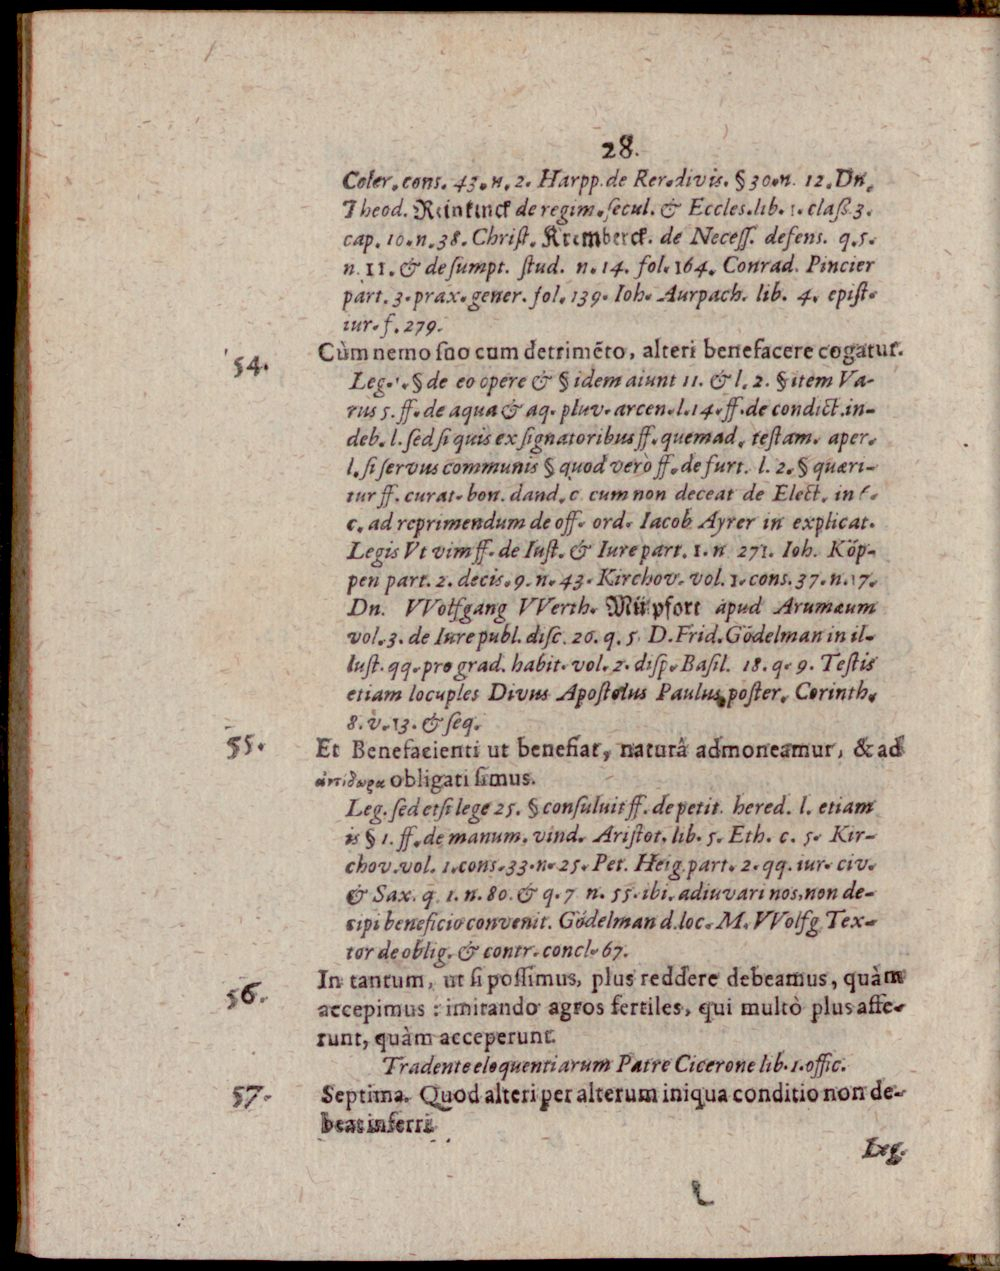 28.
Coler. cons. 43. n. 2. Harpp. de Rer. divis. § 30. n. 12. Dn.
Theod. Reinkinck de regim. secul. & Eccles. lib. 1. claß. 3.
cap. 10. n. 38. Christ. Krembercк. de Necess. defens. q. 5.
n. 11. & de sumpt. stud. n. 14. fol. 164. Conrad. Pincier
part. 3. prax. gener. fol. 139. Ioh. Aurpach. lib. 4. epist.
iur. f. 279.
54. Cùm nemo suo cum detrimẽto, alteri benefacere cogatur.
Leg. § de eo opere & § idem aiunt 11. & l. 2. § item Va-
rus 5. ff. de aqua & aq. pluv. arcen. l. 14. ff. de condict. in-
deb. l. sed si quis ex signatoribus ff. quemad. testam. aper.
l. si servus communis § quod verò ff. de furt. l. 2. § quæri-
tur ff. curat. bon. dand. c. cum non deceat de Elect. in
c. ad reprimendum de off. ord. Iacob Ayrer in explicat.
Legis Vt vim ff. de Iust. & Iure part. 1. n 271. Ioh. Köp-
pen part. 2. decis. 9. n. 43. Kirchov. vol. 1. cons. 37. n. 7.
Dn. VVolfgang VVerth. apud Arumæum
vol. 3. de Iure publ. disc. 20. q. 5. D. Frid. Gödelman in il-
lust. qq. pro grad. habit. vol. 2. disp. Basil. 18. q. 9. Testis
etiam locuples Divus Apostolus Paulus poster. Corinth.
8. v. 13. & seq.
55. Et Benefacienti ut benefiat, naturâ admoneamur, & ad
ἀντίδωρα obligati simus.
Leg. sed etsi lege 25. § consuluit ff. de petit. hered. l. etiam
is § 1. ff. de manum. vind. Aristot. lib. 5. Eth. c. 5. Kir-
chov. vol. 1. cons. 33. n. 25. Pet. Heig. part. 2. qq. iur. civ.
& Sax. q. 1. n. 80. & q. 7 n. 55. ibi. adiuvari nos, non de-
cipi beneficio convenit. Gödelman d. loc. M. VVolfg. Tex-
tor de oblig. & contr. concl. 67.
56. In tantum, ut si possimus, plus reddere debeamus, quàm
accepimus : imitando agros fertiles, qui multò plus affe-
runt, quàm acceperunt.
Tradente eloquentiarum Patre Cicerone lib. 1. offic.
57. Septima. Quod alteri per alterum iniqua conditio non de-
beat inferri
Leg.